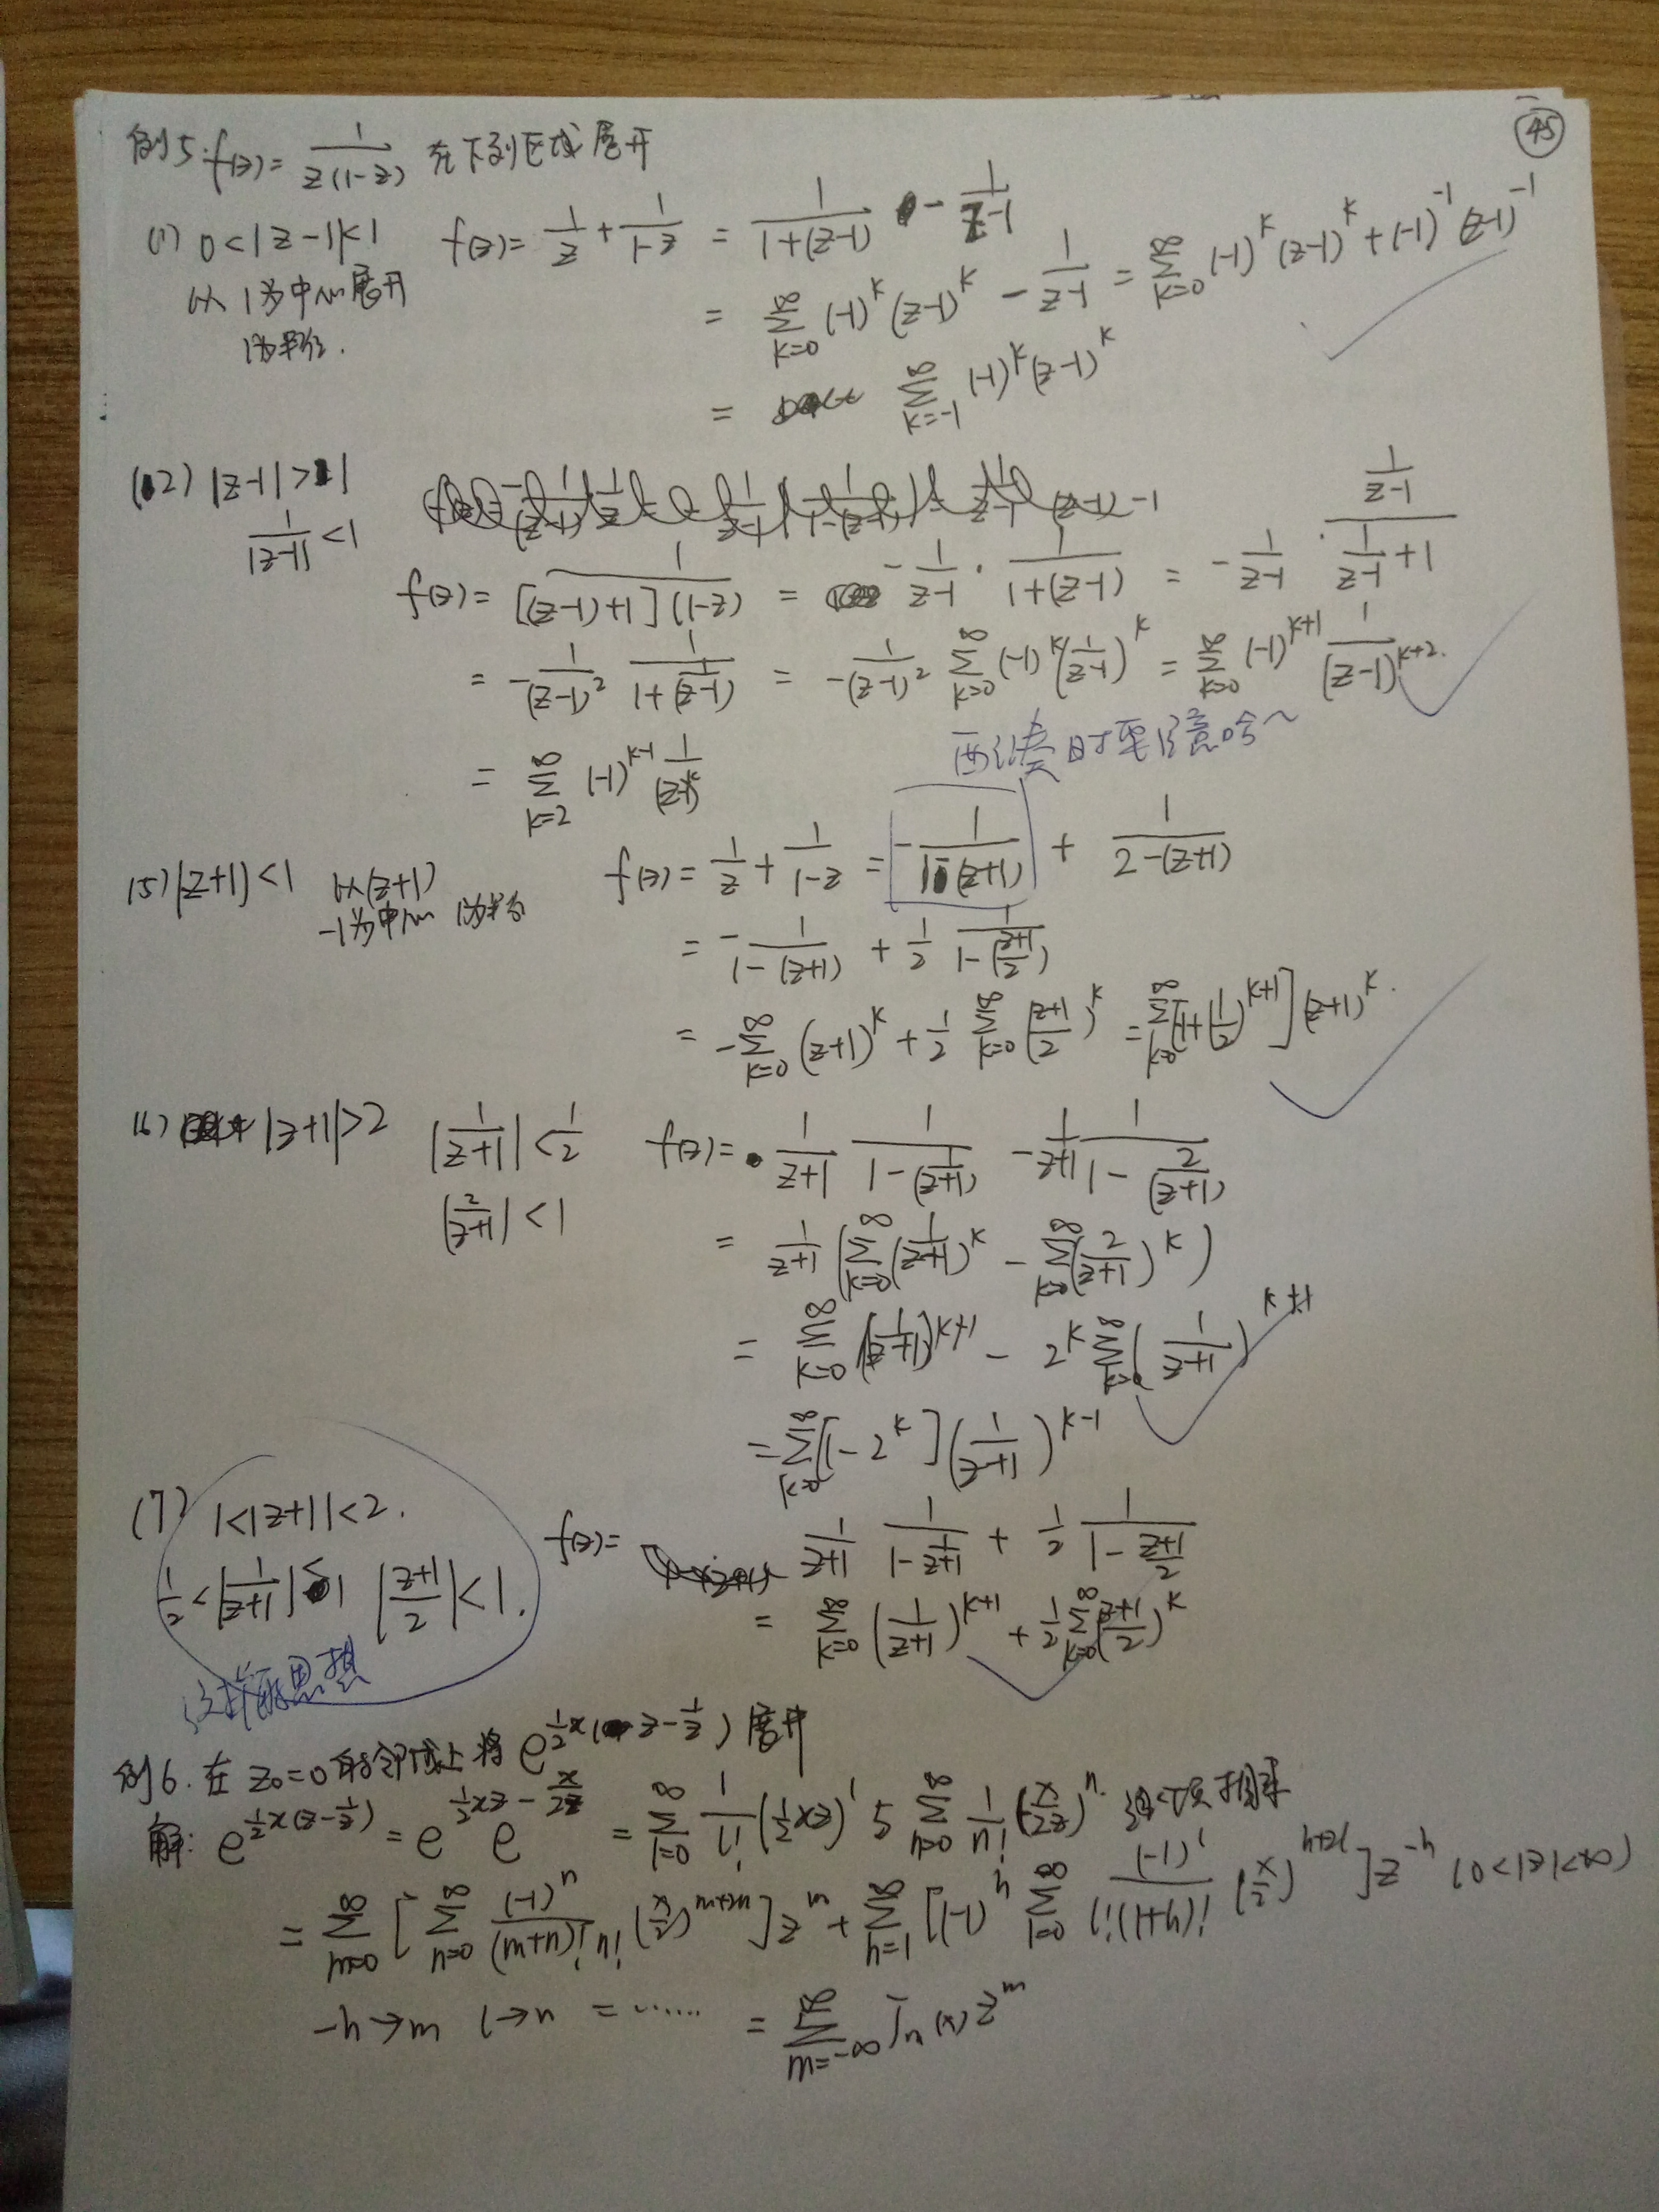 45
例5. f(z)= 1/(z(1-z)) 在下列区域展开
(1) 0<|z-1|<1 f(z)= 1/z + 1/(1-z) = 1/(1+(z-1)) - 1/(z-1)
以1为中心展开
1为半径.
= ∑_{k=0}^∞ (-1)^k (z-1)^k - 1/(z-1) = ∑_{k=0}^∞ (-1)^k (z-1)^k + (-1)^{-1} (z-1)^{-1}
= ∑_{k=-1}^∞ (-1)^k (z-1)^k
(2) |z-1|>1
1/|z-1| <1
f(z)= 1/([(z-1)+1](1-z)) = -1/(z-1) · 1/(1+(z-1)) = -1/(z-1) · (1/(z-1))/(1/(z-1)+1)
= -1/(z-1)^2 1/(1+(1/(z-1))) = -1/(z-1)^2 ∑_{k=0}^∞ (-1)^k (1/(z-1))^k = ∑_{k=0}^∞ (-1)^{k+1} 1/(z-1)^{k+2}.
= ∑_{k=2}^∞ (-1)^{k-1} 1/(z-1)^k
时要注意哈~
(5) |z+1|<1 以(z+1) f(z)= 1/z + 1/(1-z) = -1/(1-(z+1)) + 1/(2-(z+1))
-1为中心 1为半径
= -1/(1-(z+1)) + 1/2 1/(1-((z+1)/2))
= -∑_{k=0}^∞ (z+1)^k + 1/2 ∑_{k=0}^∞ ((z+1)/2)^k = ∑_{k=0}^∞ [-1+(1/2)^{k+1}] (z+1)^k.
(6) |z+1|>2 |1/(z+1)| < 1/2 f(z)= 1/(z+1) 1/(1-(1/(z+1))) - 1/(z+1) 1/(1-2/(z+1))
|2/(z+1)| <1
= 1/(z+1) (∑_{k=0}^∞ (1/(z+1))^k - ∑_{k=0}^∞ (2/(z+1))^k)
= ∑_{k=0}^∞ (1/(z+1))^{k+1} - 2^k ∑_{k=0}^∞ (1/(z+1))^{k+1}
= ∑_{k=0}^∞ [1-2^k] (1/(z+1))^{k-1}
(7) 1<|z+1|<2. f(z)= 1/(z+1) 1/(1-1/(z+1)) + 1/2 1/(1-(z+1)/2)
1/2 < |1/(z+1)| < 1 |(z+1)/2| <1.
= ∑_{k=0}^∞ (1/(z+1))^{k+1} + 1/2 ∑_{k=0}^∞ ((z+1)/2)^k
思想
例6. 在 z₀=0 的邻域上将 e^{1/2 x(z-1/z)} 展开
解: e^{1/2 x(z-1/z)} = e^{1/2 xz} e^{-x/2z} = ∑_{l=0}^∞ 1/l! (1/2 xz)^l 与 ∑_{n=0}^∞ 1/n! (-x/2z)^n 逐项相乘
= ∑_{m=0}^∞ [∑_{n=0}^∞ (-1)^n/((m+n)! n!) (x/2)^{m+2n}] z^m + ∑_{h=1}^∞ [(-1)^h ∑_{l=0}^∞ (-1)^l/(l!(l+h)!) (x/2)^{h+2l}] z^{-h} (0<|z|<∞)
-h→m l→n = ······ = ∑_{m=-∞}^∞ J_n(x) z^m